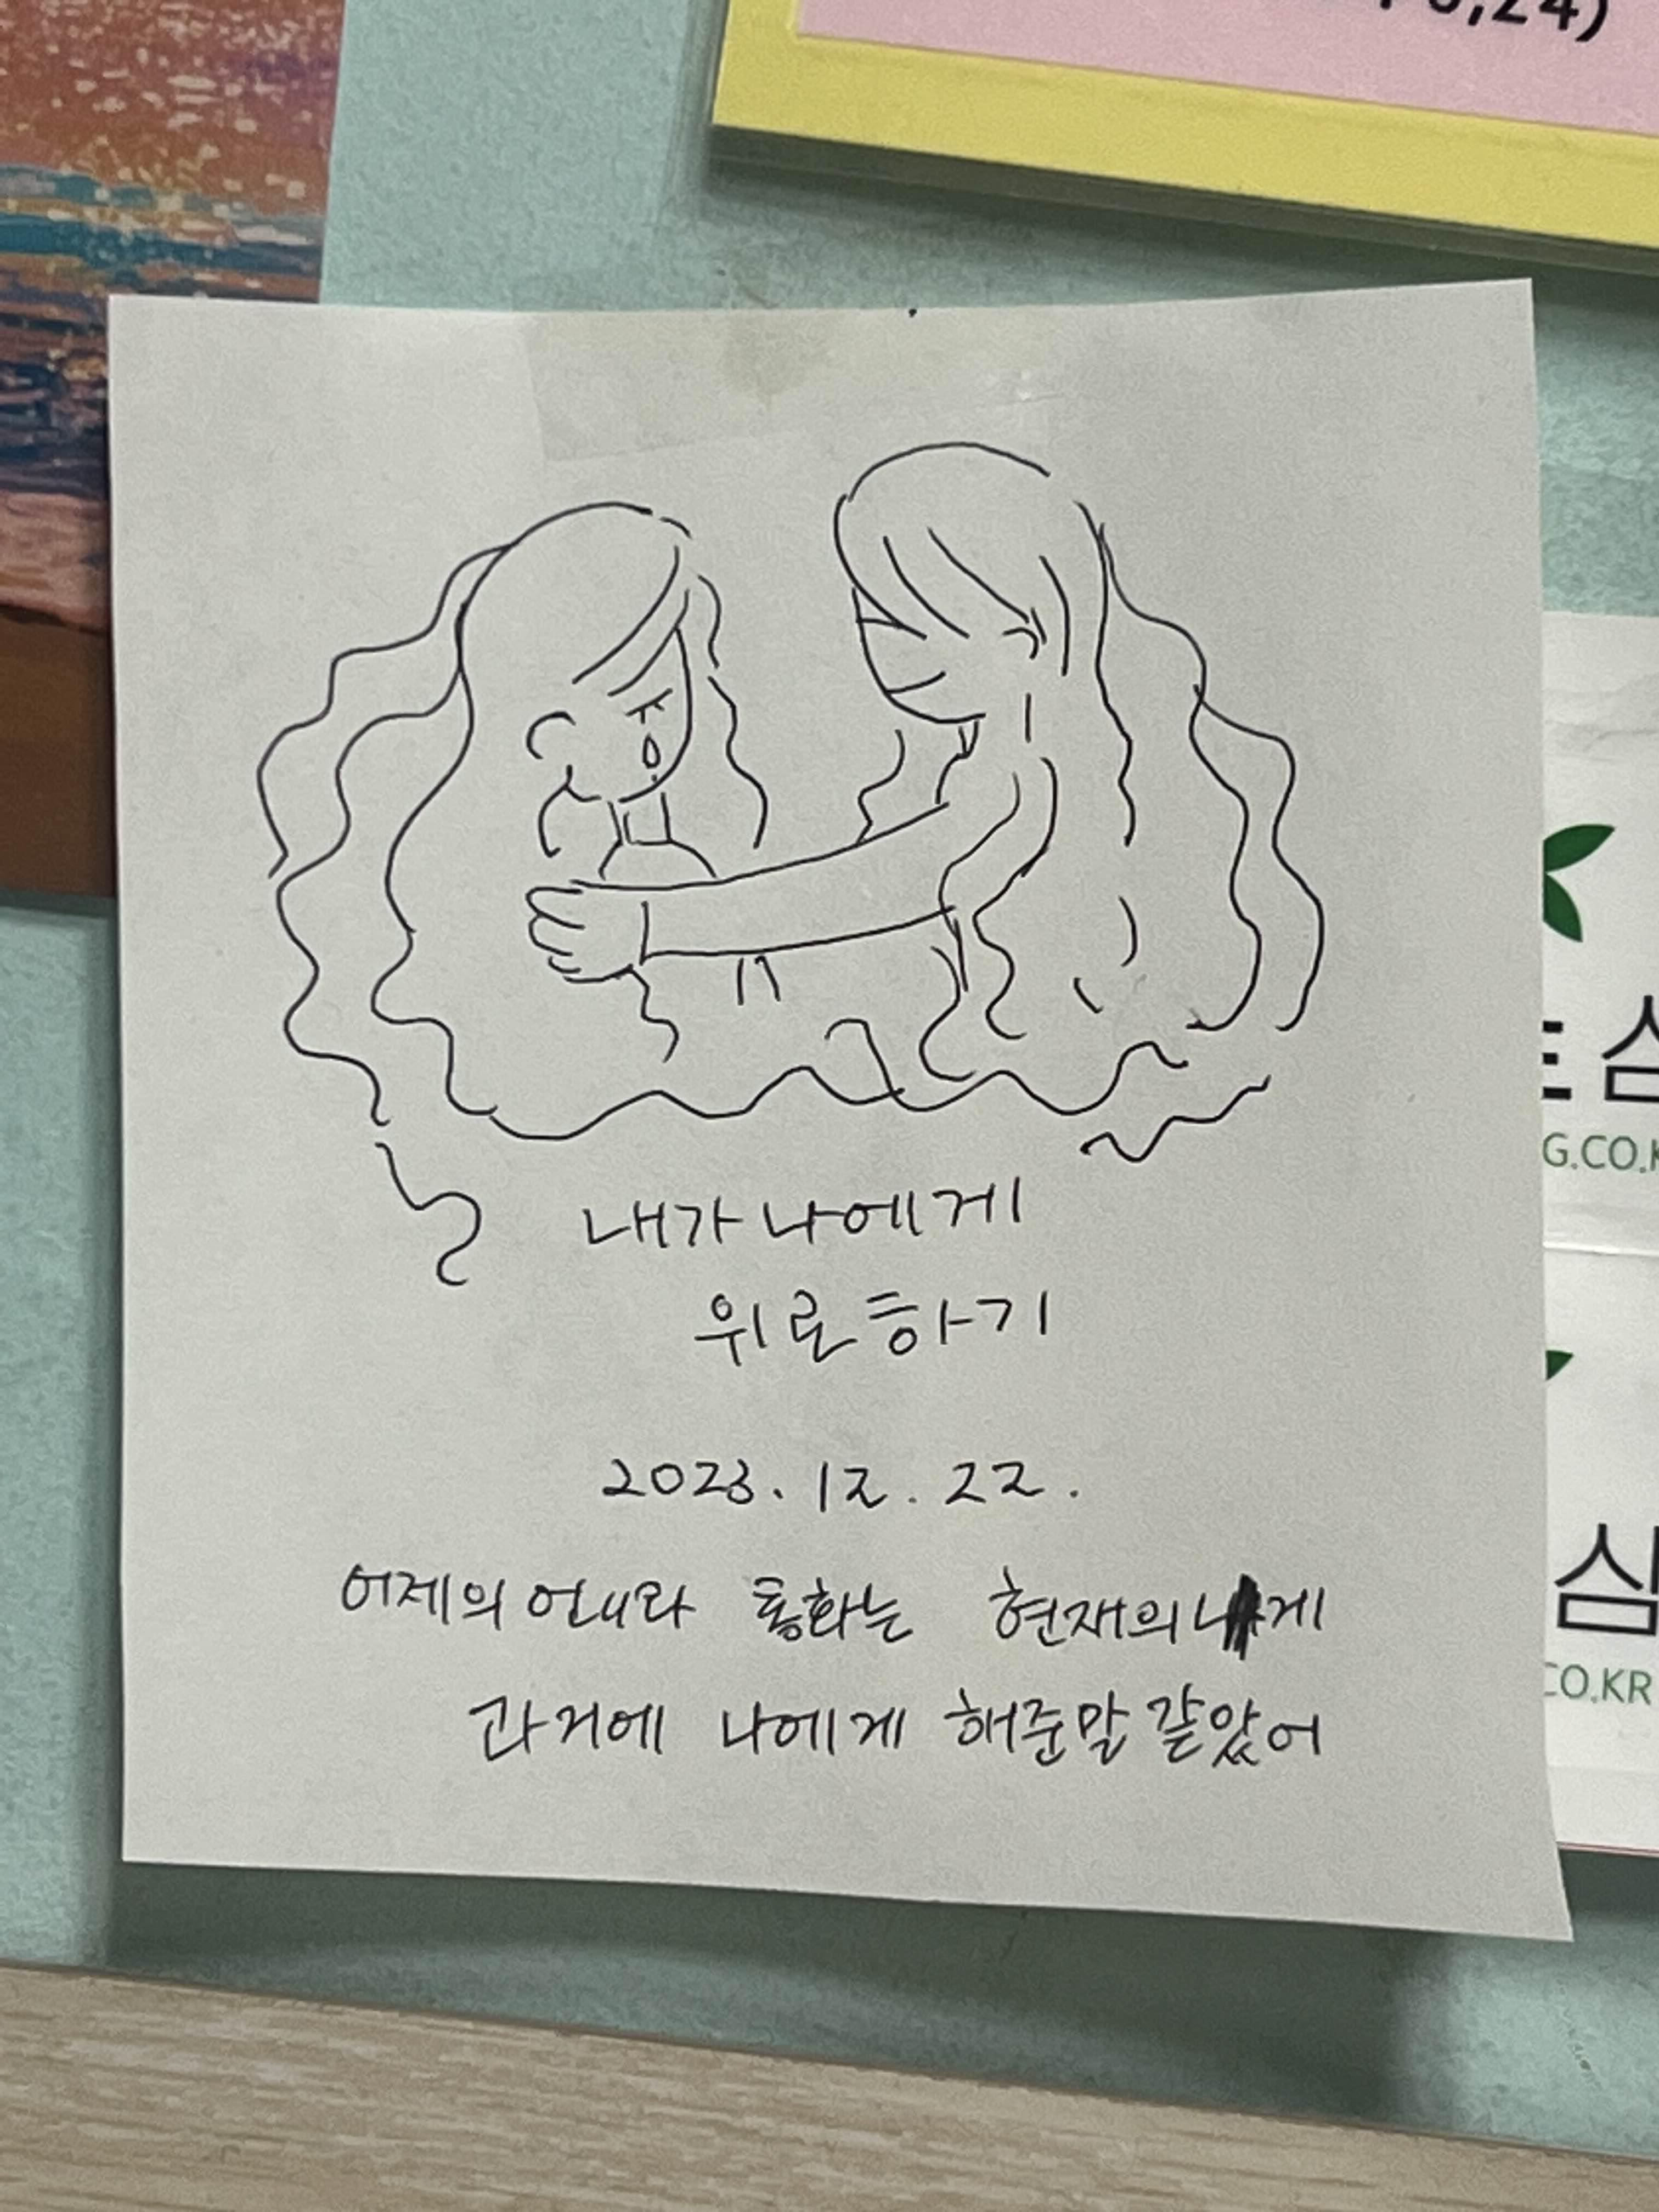 24)
내가 나에게
위로하기
2023. 12. 22.
어제의 언니와 통화는 현재의
과거에 나에게 해준말 같았어
심
G.CO.K
심
CO.KR